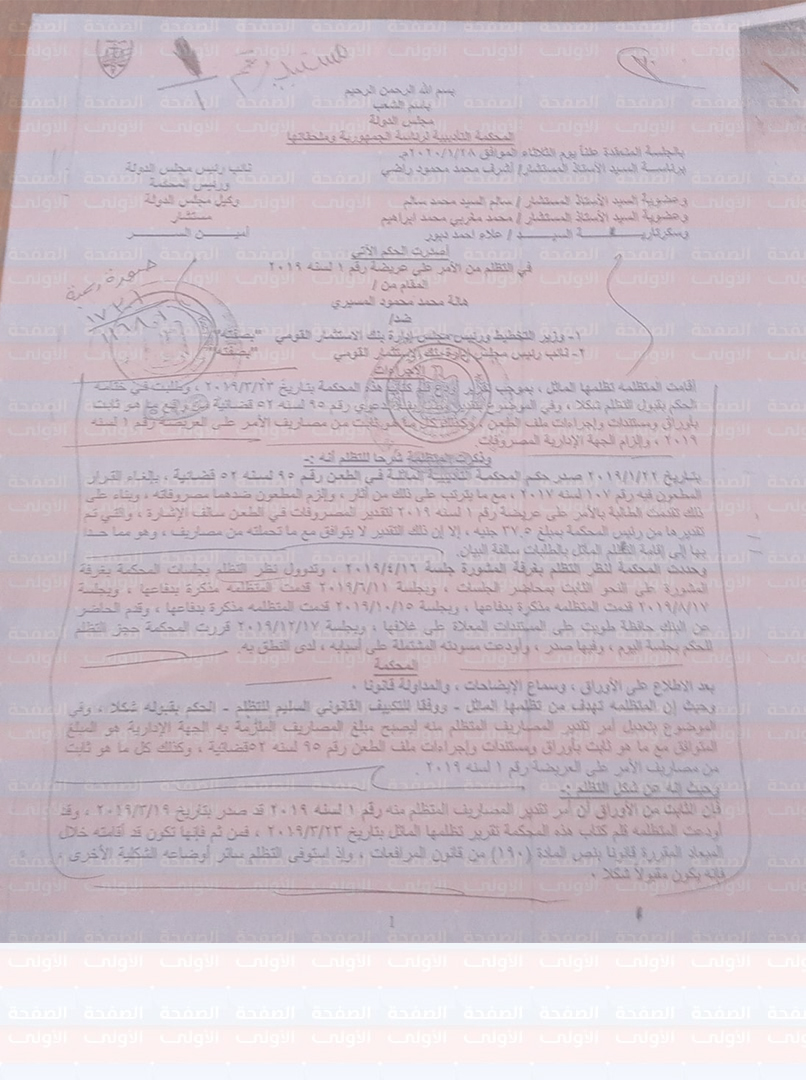 بسم الله الرحمن الرحيم
باسم الشعب
مجلس الدولة
المحكمة التأديبية لرئاسة الجمهورية وملحقاتها
بالجلسة المنعقدة علناً يوم الثلاثاء الموافق ٢٠٢٠/١/٢٨م.
برئاسة السيد الأستاذ المستشار/ أشرف محمد محمود راضي نائب رئيس مجلس الدولة
ورئيس المحكمة
وعضوية السيد الأستاذ المستشار / سالم السيد محمد سالم وكيل مجلس الدولة
وعضوية السيد الأستاذ المستشار / محمد مغربي محمد ابراهيم مستشار
وسكرتارية السيد / علاء احمد دبور أمين السر
أصدرت الحكم الآتي
في التظلم من الأمر على عريضة رقم ١ لسنه ٢٠١٩
المقام من /
هالة محمد محمود المسيري
ضد/
١- وزير التخطيط ورئيس مجلس إدارة بنك الاستثمار القومي "بصفته"
٢- نائب رئيس مجلس إدارة بنك الاستثمار القومي "بصفته"
الإجراءات
أقامت المتظلمه تظلمها الماثل ، بموجب تقرير أودع قلم كتاب هذه المحكمة بتاريخ ٢٠١٩/٣/٢٣ ، وطلبت في ختامه
الحكم بقبول التظلم شكلا ، وفي الموضوع رقم ٩٥ لسنه ٥٢ قضائية هو ثابت
بأوراق ومستندات وإجراءات ملف الطعن ، وكذلك كل ما هو ثابت من مصاريف الأمر على العريضة رقم ١ لسنه
٢٠١٩ ، وإلزام الجهة الإدارية المصروفات.
وذكرت المتظلمة شرحا للتظلم أنه :-
بتاريخ ٢٠١٩/١/٢٢ صدر حكم المحكمة التأديبية الماثلة في الطعن رقم ٩٥ لسنه ٥٢ قضائية ، بإلغاء القرار
المطعون فيه رقم ١٠٧ لسنه ٢٠١٧ ، مع ما يترتب على ذلك من آثار ، وإلزم المطعون ضدهما مصروفاته ، وبناء على
ذلك تقدمت الطالبة بالأمر على عريضة رقم ١ لسنه ٢٠١٩ لتقدير المصروفات في الطعن سالف الإشارة ، والتي تم
تقديرها من رئيس المحكمة بمبلغ ٣٧.٥ جنيه ، إلا إن ذلك التقدير لا يتوافق مع ما تحملته من مصاريف ، وهو مما حدا
بها إلى إقامة التظلم الماثل بالطلبات سالفة البيان.
وحددت المحكمة لنظر التظلم بغرفة المشورة جلسة ٢٠١٩/٤/١٦ ، وتدوول نظر التظلم بجلسات المحكمة بغرفة
المشورة على النحو الثابت بمحاضر الجلسات ، وبجلسة ٢٠١٩/٦/١١ قدمت المتظلمه مذكرة بدفاعها ، وبجلسة
٢٠١٩/٨/١٧ قدمت المتظلمه مذكرة بدفاعها ، وبجلسة ٢٠١٩/١٠/١٥ قدمت المتظلمه مذكرة بدفاعها ، وقدم الحاضر
عن البنك حافظة طويت على المستندات المعلاة على غلافها ، وبجلسة ٢٠١٩/١٢/١٧ قررت المحكمة حجز التظلم
للحكم بجلسة اليوم ، وفيها صدر ، وأودعت مسودته المشتملة على أسبابه ، لدى النطق به.
المحكمة
بعد الاطلاع على الأوراق ، وسماع الإيضاحات ، والمداولة قانونا .
وحيث إن المتظلمه تهدف من تظلمها الماثل - ووفقا للتكييف القانوني السليم للتظلم - الحكم بقبوله شكلا ، وفي
الموضوع بتعديل أمر تقدير المصاريف المتظلم منه ليصبح مبلغ المصاريف الملزمة به الجهة الإدارية هو المبلغ
المتوافق مع ما هو ثابت بأوراق ومستندات وإجراءات ملف الطعن رقم ٩٥ لسنه ٥٢قضائية ، وكذلك كل ما هو ثابت
من مصاريف الأمر على العريضة رقم ١ لسنه ٢٠١٩ .
وحيث إنه عن شكل التظلم :-
فإن الثابت من الأوراق أن أمر تقدير المصاريف المتظلم منه رقم ١ لسنه ٢٠١٩ قد صدر بتاريخ ٢٠١٩/٣/١٩ ، وقد
أودعت المتظلمه قلم كتاب هذه المحكمة تقرير تظلمها الماثل بتاريخ ٢٠١٩/٣/٢٣ ، فمن ثم فإنها تكون قد أقامته خلال
الميعاد المقررة قانونا بنص المادة (١٩٠) من قانون المرافعات ، وإذ استوفى التظلم سائر أوضاعه الشكلية الأخرى ،
فإنه يكون مقبولا شكلا .
1
الصفحة الأولى